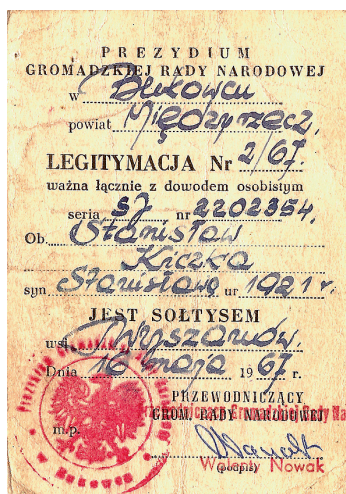 PREZYDIUM
GROMADZKIEJ RADY NARODOWEJ
w
powiat Międzyrzecz,
LEGITYMACJA Nr 2/67.
ważna łącznie z dowodem osobistym
seria SJ nr 2202354,
Ob. Stanisław
Kiczka
syn Stanisława ur 1921 r.
JEST SOŁTYSEM
wsi
Dnia 16 maja 1967 r.
PRZEWODNICZĄCY
GROM. RADY NARODOWEJ
m.p.
(podpis)
Walenty Nowak